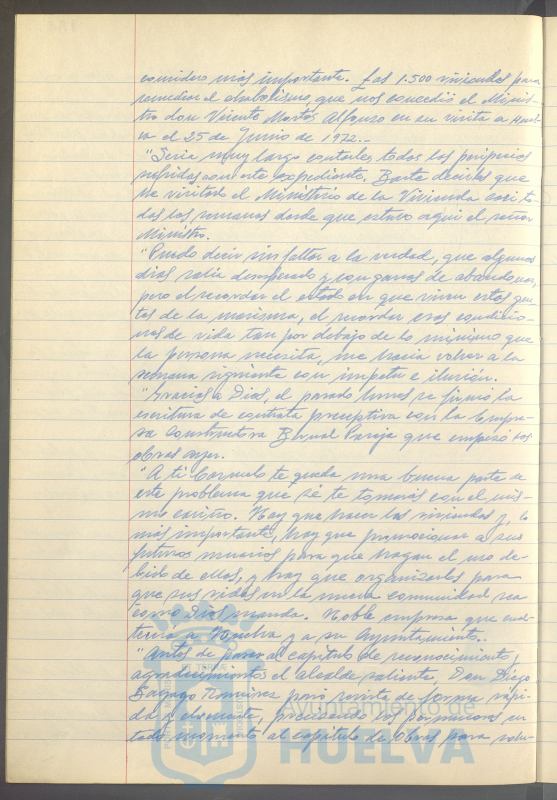 considero más importante. Las 1.500 viviendas para
remediar el chabolismo, que nos concedió el Minis-
tro don Vicente Mortes Alfonso en su visita a Huel-
va el 25 de Junio de 1972.-
"Sería muy largo contarles todas las peripecias
sufridas con este expediente, Baste decirles que
he visitado el Ministerio de la Vivienda casi to-
das las semanas desde que estuvo aquí el señor
Ministro.
"Puedo decir sin faltar a la verdad, que algunos
días salía desesperado y con ganas de abandonar,
pero el recordar el estado en que viven estas gen-
tes de la marisma, el recordar esas condicio-
nes de vida tan por debajo de lo mínimo que
la persona necesita, me hacía volver a la
semana siguiente con ímpetu e ilusión.
"Gracias a Dios, el pasado lunes se firmó la
escritura de contrata preceptiva con la Empre-
sa Constructora Bernal Pareja que empezó las
obras ayer.
"A ti Carmelo te queda una buena parte de
este problema que sé te tomarás con el mis-
mo cariño. Hay que hacer las viviendas y, lo
más importante, hay que promocionar a sus
futuros usuarios para que hagan el uso de-
bido de ellas, y hay que organizarles para
que sus vidas en la nueva comunidad sea
como Dios manda. Noble empresa que
a Huelva y a su Ayuntamiento.
"Antes de pasar al capítulo de reconocimiento y
agradecimientos el alcalde saliente, Don Diego
Sayago Ramírez pasó revista de forma rápi-
da y elocuente, precisando los pormenores en
todo momento al capítulo de obras para
Ayuntamiento de
HUELVA